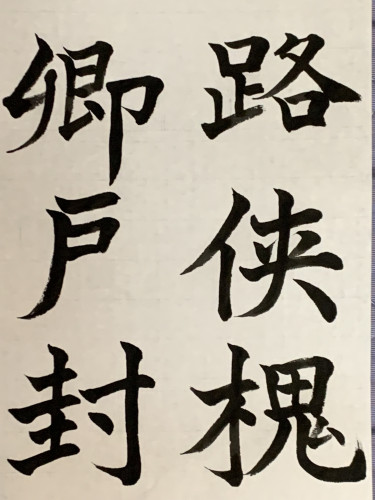 路侠槐
卿戸封